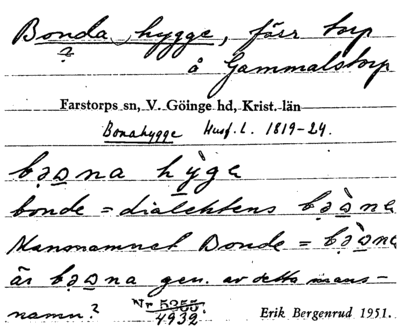 Bonda hygge, förr torp
?
å Gammalstorp
Farstorps sn, V. Göinge hd, Krist. län
Bonahygge Husf. l. 1819-24.
bəɔna hỳgə
bonde = dialektens bə̀ɔnə
Mansnamnet Bonde = bə̀ɔnə
är bəɔna gen. av detta mans-
namn?
Nr 5255
4932
Erik Bergenrud 1951.